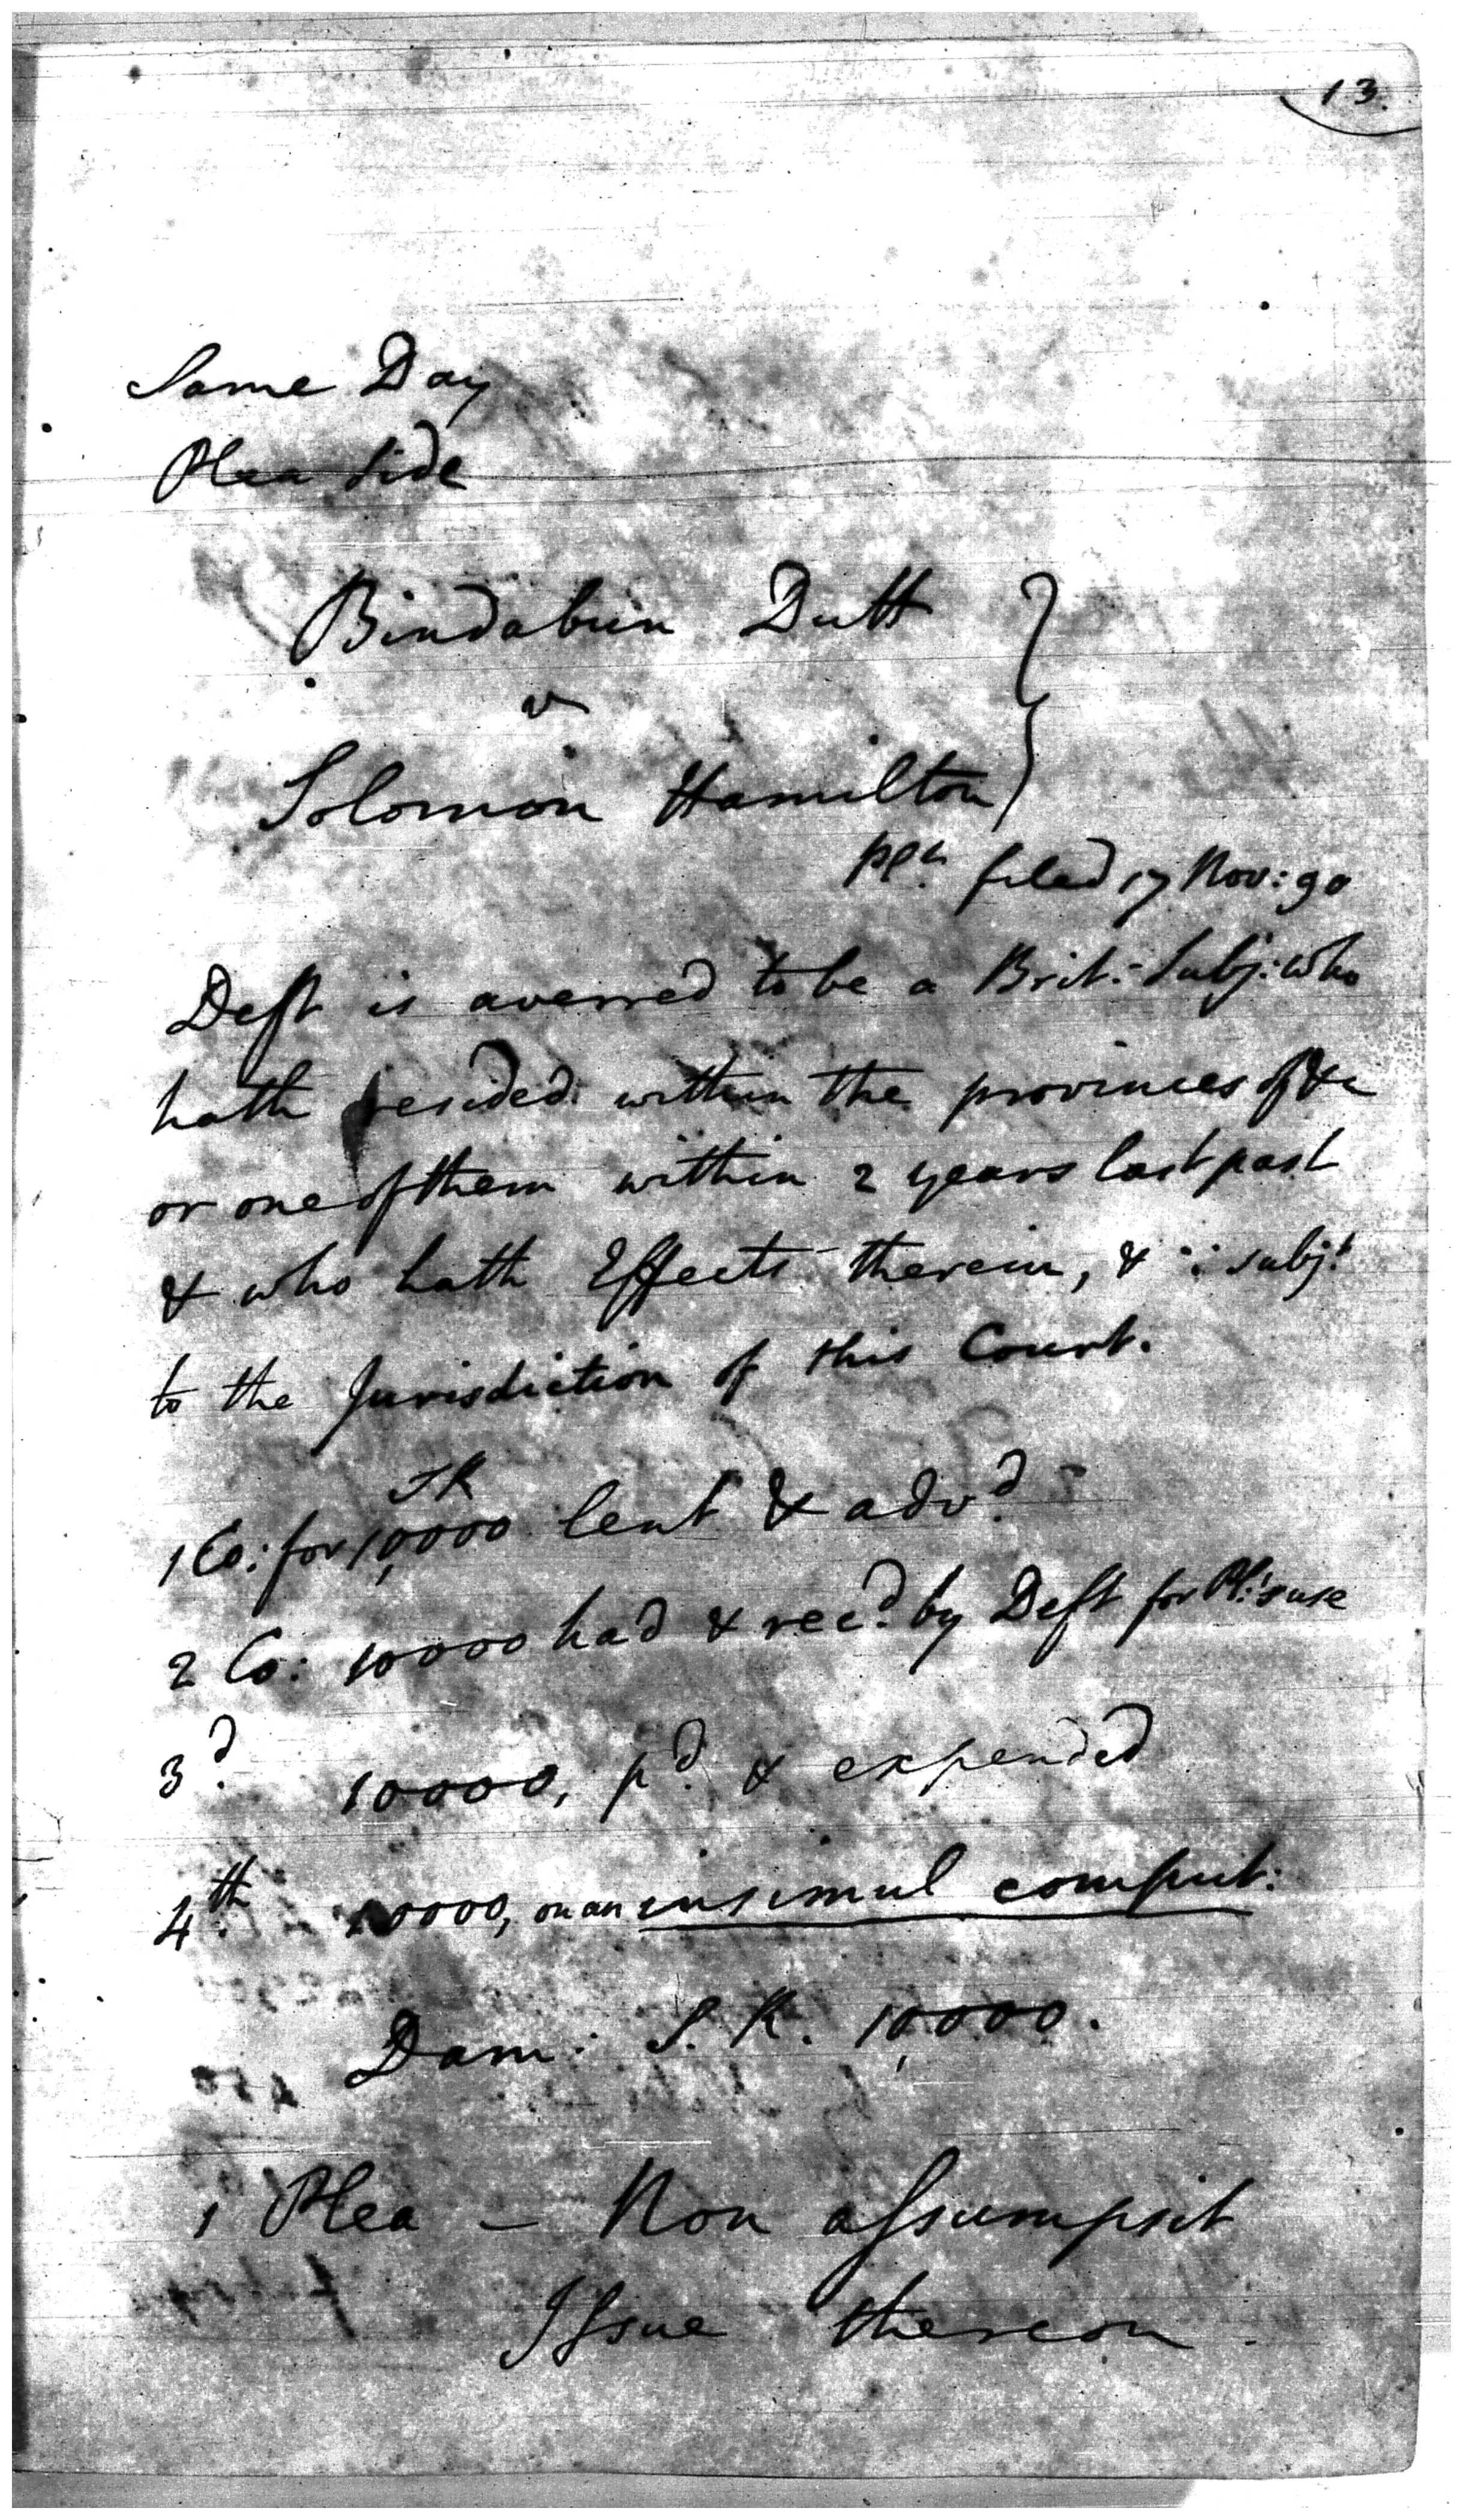 13.
Same Day
Plea Side
Bindabun Dutt
v
Solomon Hamilton
filed 17 Nov: 90
Deft is averred to be a Brit: Subj: who
hath resided within the provinces of &c
or one of them within 2 years last past
& who hath Effects therein, & ∵ subjt
to the Jurisdiction of this Court.
SR
1 Co: for 10,000 lent & advd
2 Co: 10000 had & recd. by Deft for Pl:'s use
3d. 10000, pd. & expended
4th. 10000, on an insimul comput:
Dam: S. R. 10,000.
1 Plea – Non assumpsit
Issue thereon.